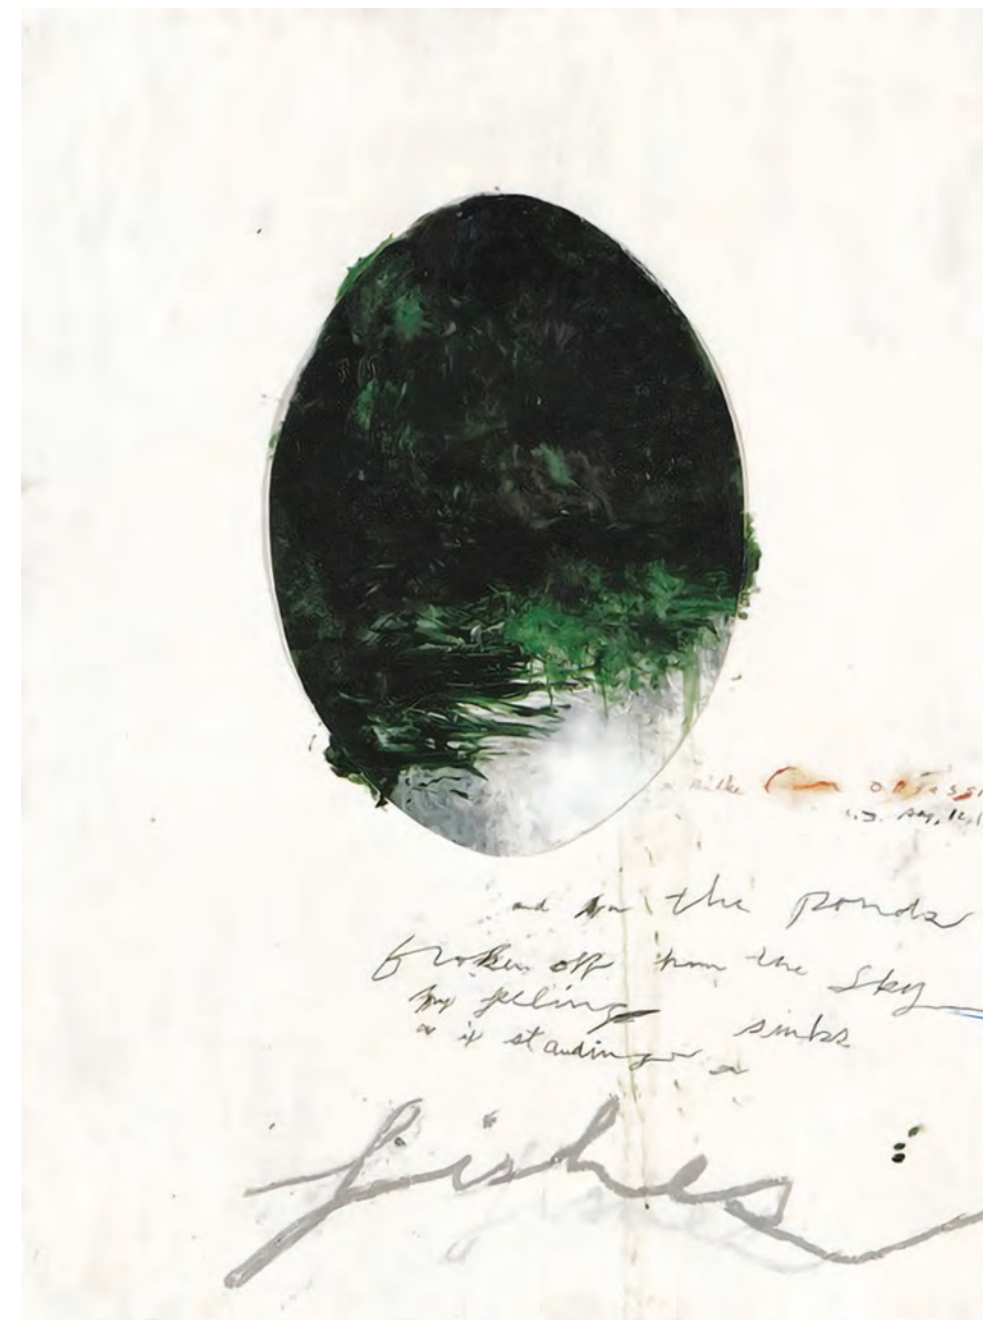 Rilke
and in the ponds
broken off from the sky
my feeling sinks
as if standing on
fishes